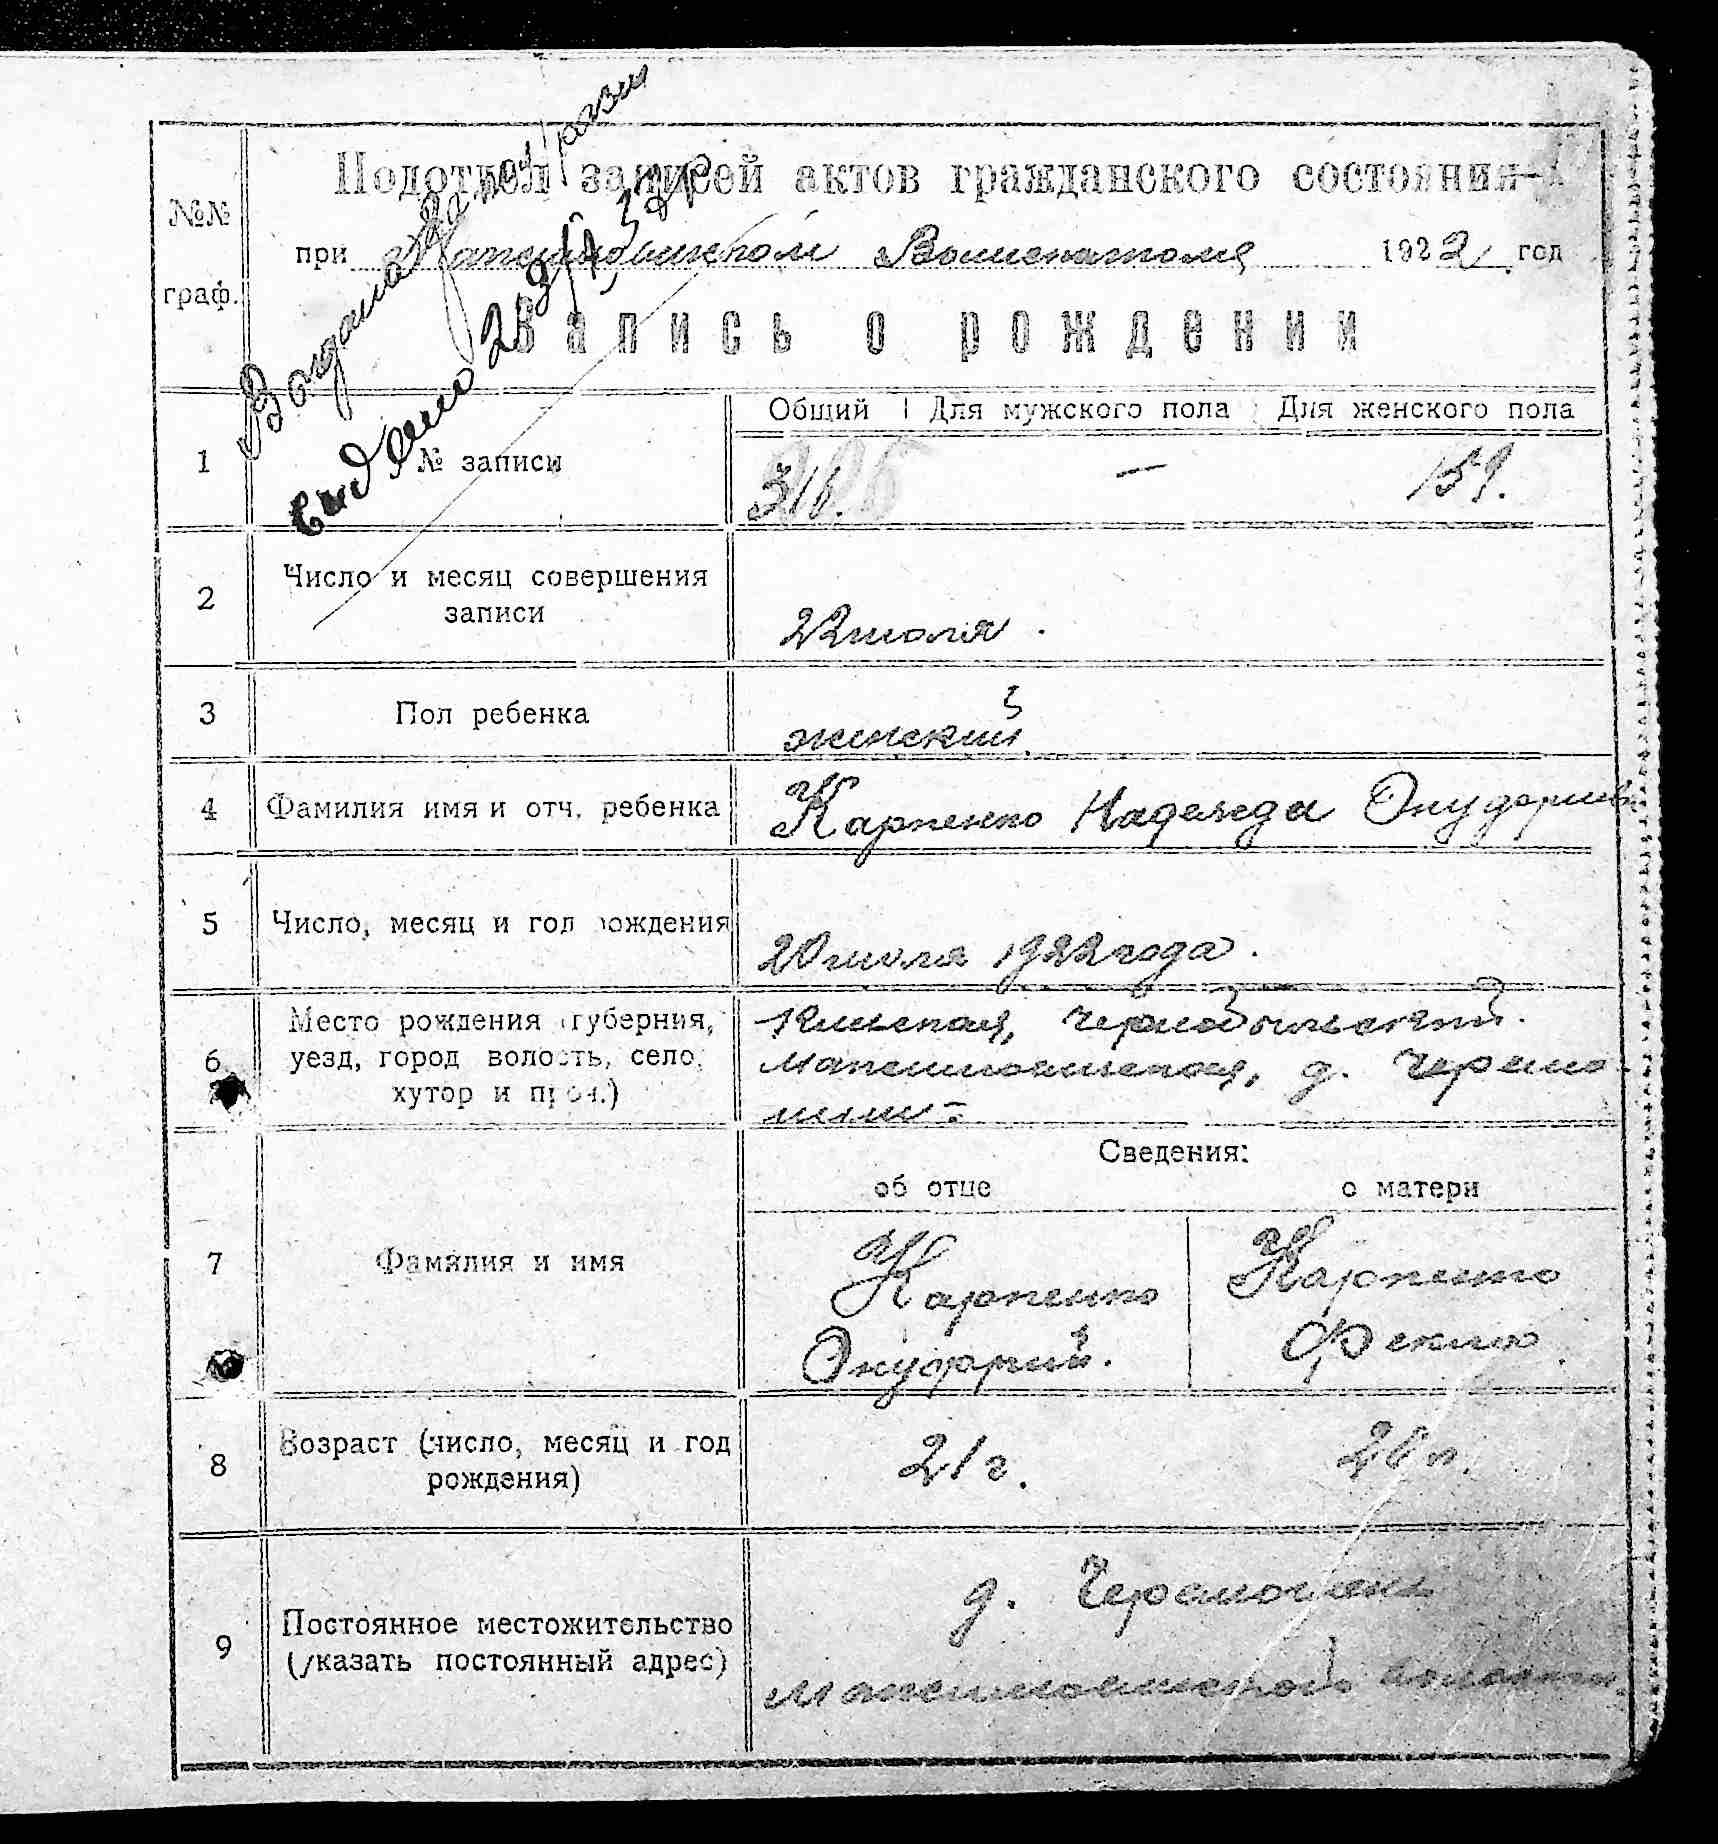 Подотдел записей актов гражданского состояния
при Волисполкоме 1922 год
№№ граф.
Запись о рождении
Общий Для мужского пола Для женского пола
1 № записи 316. — 159.
2 Число и месяц совершения записи 22 июля.
3 Пол ребенка женский
4 Фамилия имя и отч. ребенка Карпенко Надежда
5 Число, месяц и год рождения 20 июля 1922 года.
6 Место рождения (губерния, Киевская, Чернобыльский.
уезд, город волость, село, д.
хутор и проч.)
Сведения:
об отце о матери
7 Фамилия и имя Карпенко Карпенко
Онуфрий.
8 Возраст (число, месяц и год 21 г.
рождения)
9 Постоянное местожительство д.
(указать постоянный адрес) волости.